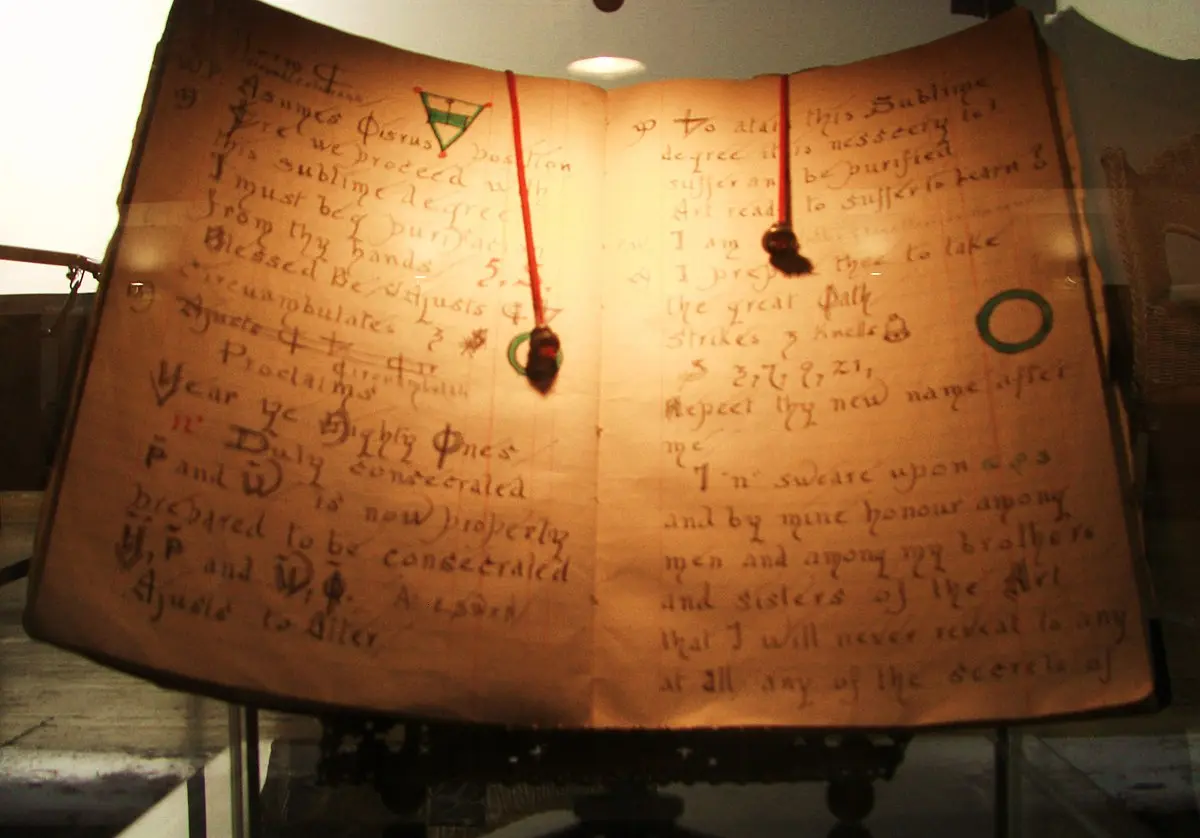 Asumes Osirus position
Ere we proceed with
this sublime degree
I must beg purifacti
from thy hands 5,
Blessed Be Ajusts
circumambulates 3
Ajusts
Proclaims
Hear ye Mighty Ones
n" Duly consecrated
P and W is now properly
prepared to be consecrated
H, P and W, Φ.
Ajusts to Alter
To atai this Sublime
degree it is nessecry to
suffer an be purified
Art read to suffer to Learn
I am
I prep thee to take
the great Path
Strikes 3 Knells
3, 7, 9, 21,
Repeet thy new name after
me
I "n" sweare upon
and by mine honour among
men and among my brothers
and sisters of the Art
that I will never reveal to any
at all any of the secrets of